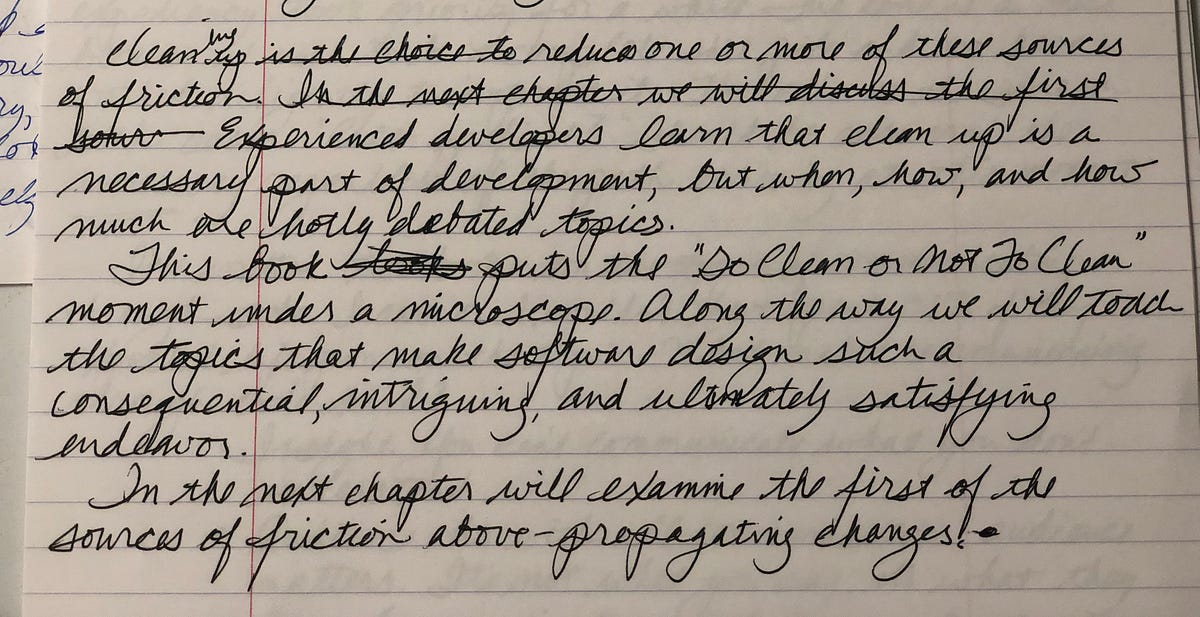 Cleaning up is the choice to reduces one or more of these sources
of friction. In the next chapter we will discuss the first
sour Experienced developers learn that clean up is a
necessary part of development, but when, how, and how
much are hotly debated topics.
This book looks puts the "To Clean or Not To Clean"
moment under a microscope. Along the way we will touch
the topics that make software design such a
consequential, intriguing, and ultimately satisfying
endeavor.
In the next chapter will examine the first of the
sources of friction above-propagating changes.